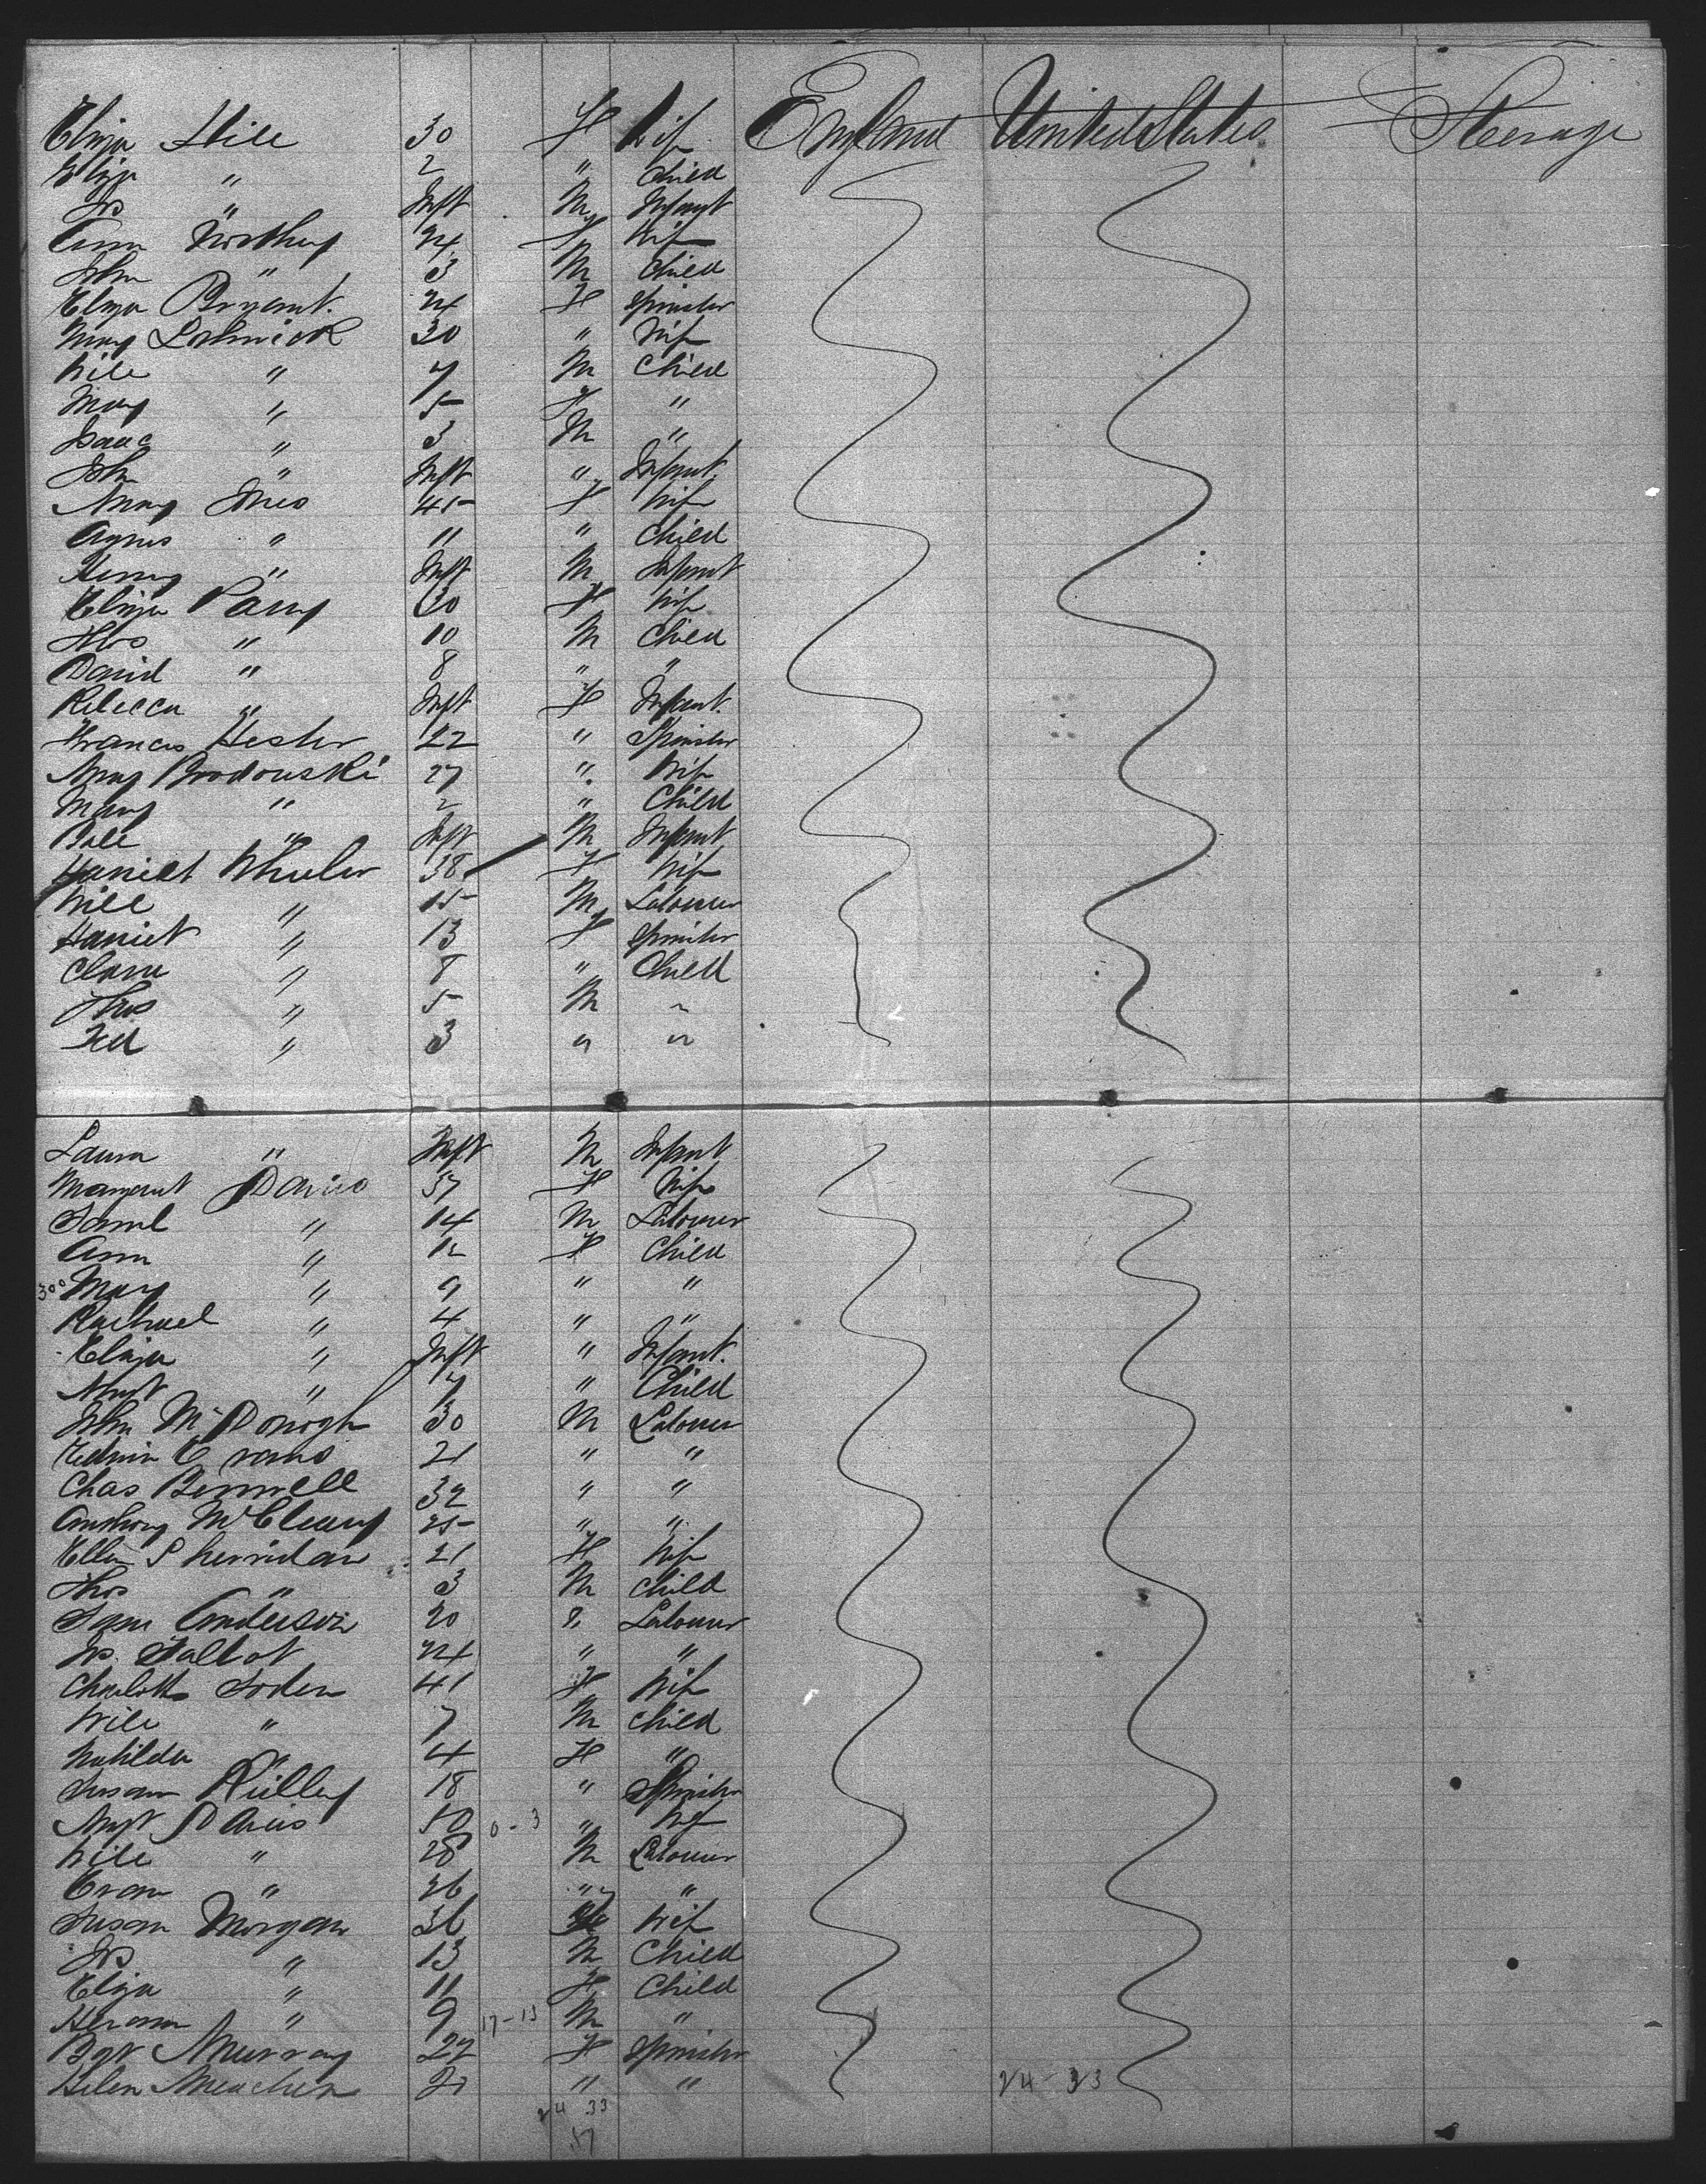 Eliza Hill 30 F Wife England United States Steerage
Eliza " 2 " Child
Js " Inft M Infant
Ann Northey 24 F Wife
John " 3 M Child
Eliza Bryant. 24 F Spinster
Mary 30 " Wife
Will " 7 M Child
Mary " 5 F "
Isaac " 3 M "
John " Inft " Infant
Mary Jones 45 F Wife
Agnes " 11 " Child
Henry " Inft M Infant
Eliza Parry 30 F Wife
Thos " 10 M Child
David " 8 " "
Rebecca " Inft F Infant.
Frances Hester 22 " Spinster
Mary Brodouski 27 " Wife
Mary " 2 " Child
" Inft M Infant
Harriet Wheeler 38 F Wife
Will " 15 M Labourer
Harriet " 13 F Spinster
Clara " 8 " Child
Thos " 5 M "
Fed " 3 " "
Laura " Inft M Infant
Margaret Davies 37 F Wife
Saml " 14 M Labourer
Ann " 12 F Child
300 Mary " 9 " "
Rachael " 4 " "
Eliza " Inft " Infant.
Margt " 7 " Child
John McDonogh 30 M Labourer
Edwin Evans 21 " "
Chas Bennell 32 " "
Anthony McCleary 25 " "
Ellen Sherridan 21 F Wife
Thos " 3 M Child
Sam Anderson 20 " Labourer
Js. Talbot 24 " "
Charlotte Soden 41 F Wife
Will " 7 M Child
Mathilda " 4 F "
Susan Rülley 18 " Spinster
Margt Davies 50 0-3 " Wife
Will " 28 M Labourer
Evan " 26 " "
Susan Morgan 36 F Wife
Js " 13 M Child
Eliza " 11 F Child
" 9 17-13 M "
Bgt Murray 22 F Spinster
Helen Meachen 20 " " 24-33
24 33
57